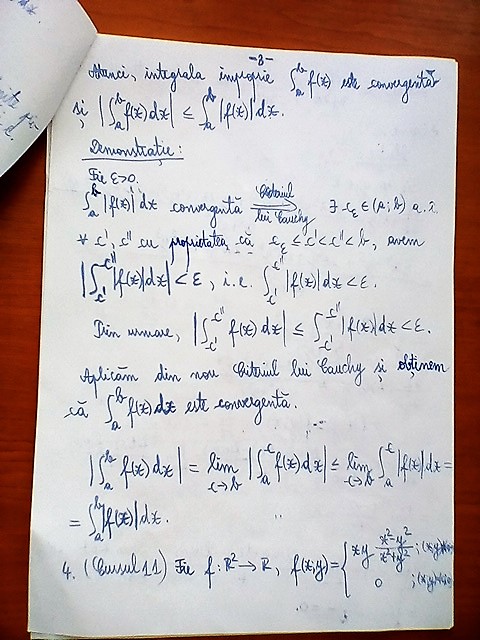 -3-
Atunci, integrala improprie ∫_a^b f(x) este convergentă
și |∫_a^b f(x)dx| ≤ ∫_a^b |f(x)|dx.
Demonstrație:
Fie ε>0.
∫_a^b |f(x)| dx convergentă ⟹ (Criteriul lui Cauchy) ∃ c_ε ∈ (a; b) a. î.
∀ c', c'' cu proprietatea că c_ε ≤ c' < c'' < b, avem
|∫_{c'}^{c''} |f(x)|dx| < ε, i.e. ∫_{c'}^{c''} |f(x)|dx < ε.
Prin urmare, |∫_{c'}^{c''} f(x) dx| ≤ ∫_{c'}^{c''} |f(x)|dx < ε.
Aplicăm din nou Criteriul lui Cauchy și obținem
că ∫_a^b f(x)dx este convergentă.
|∫_a^b f(x)dx| = lim_{c→b} |∫_a^c f(x)dx| ≤ lim_{c→b} ∫_a^c |f(x)|dx =
= ∫_a^b |f(x)|dx.
4. (Cursul 11) Fie f: ℝ² → ℝ, f(x;y) = { xy (x²-y²)/(x²+y²) ; (x;y)
0 ; (x;y)